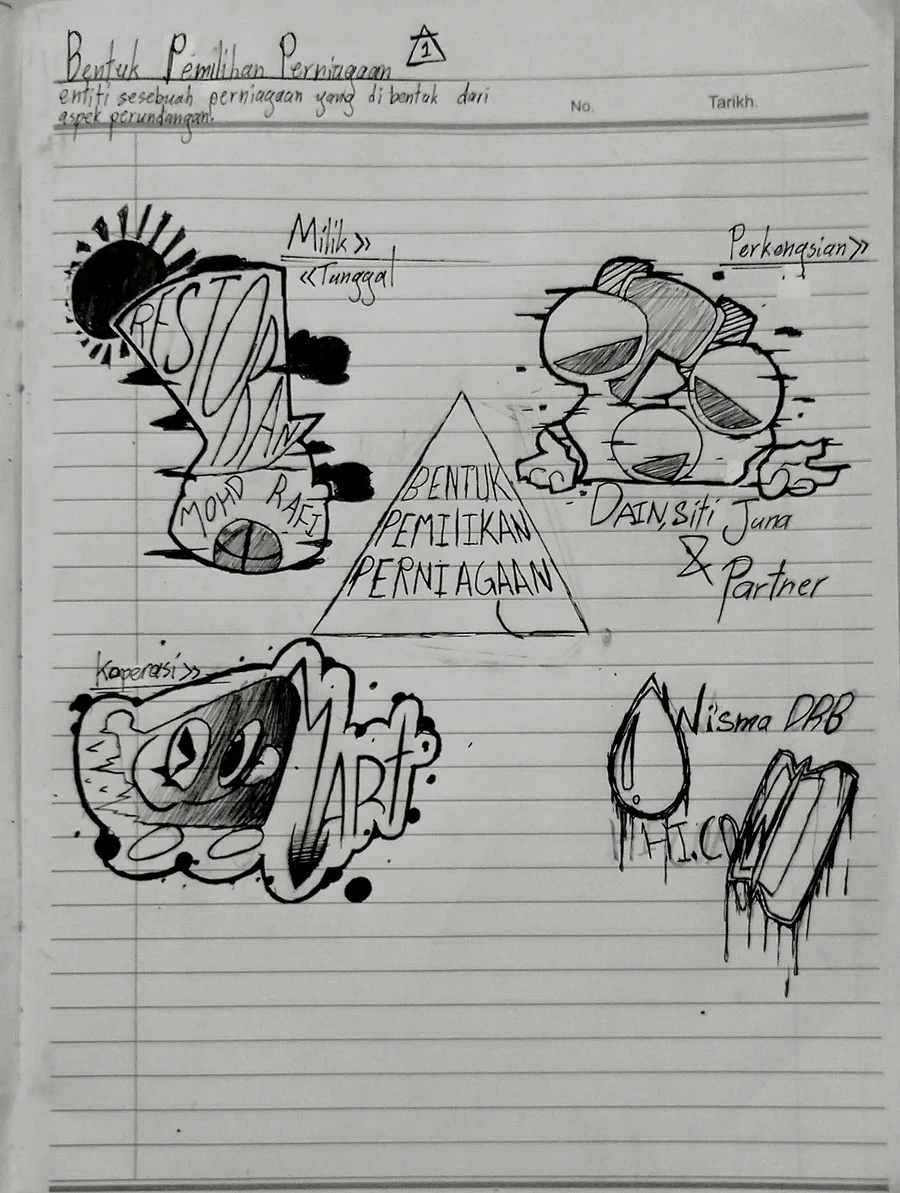 Bentuk Pemilihan Perniagaan 1
entiti sesebuah perniagaan yang dibentuk dari
aspek perundangan.
No.
Tarikh.
Milik >>
<< Tunggal
RESTORAN
MOHD RAFI
Perkongsian >>
DAIN, Siti Juna
& Partner
BENTUK
PEMILIKAN
PERNIAGAAN
Koperasi >>
MART
Wisma DRB
HI.COM